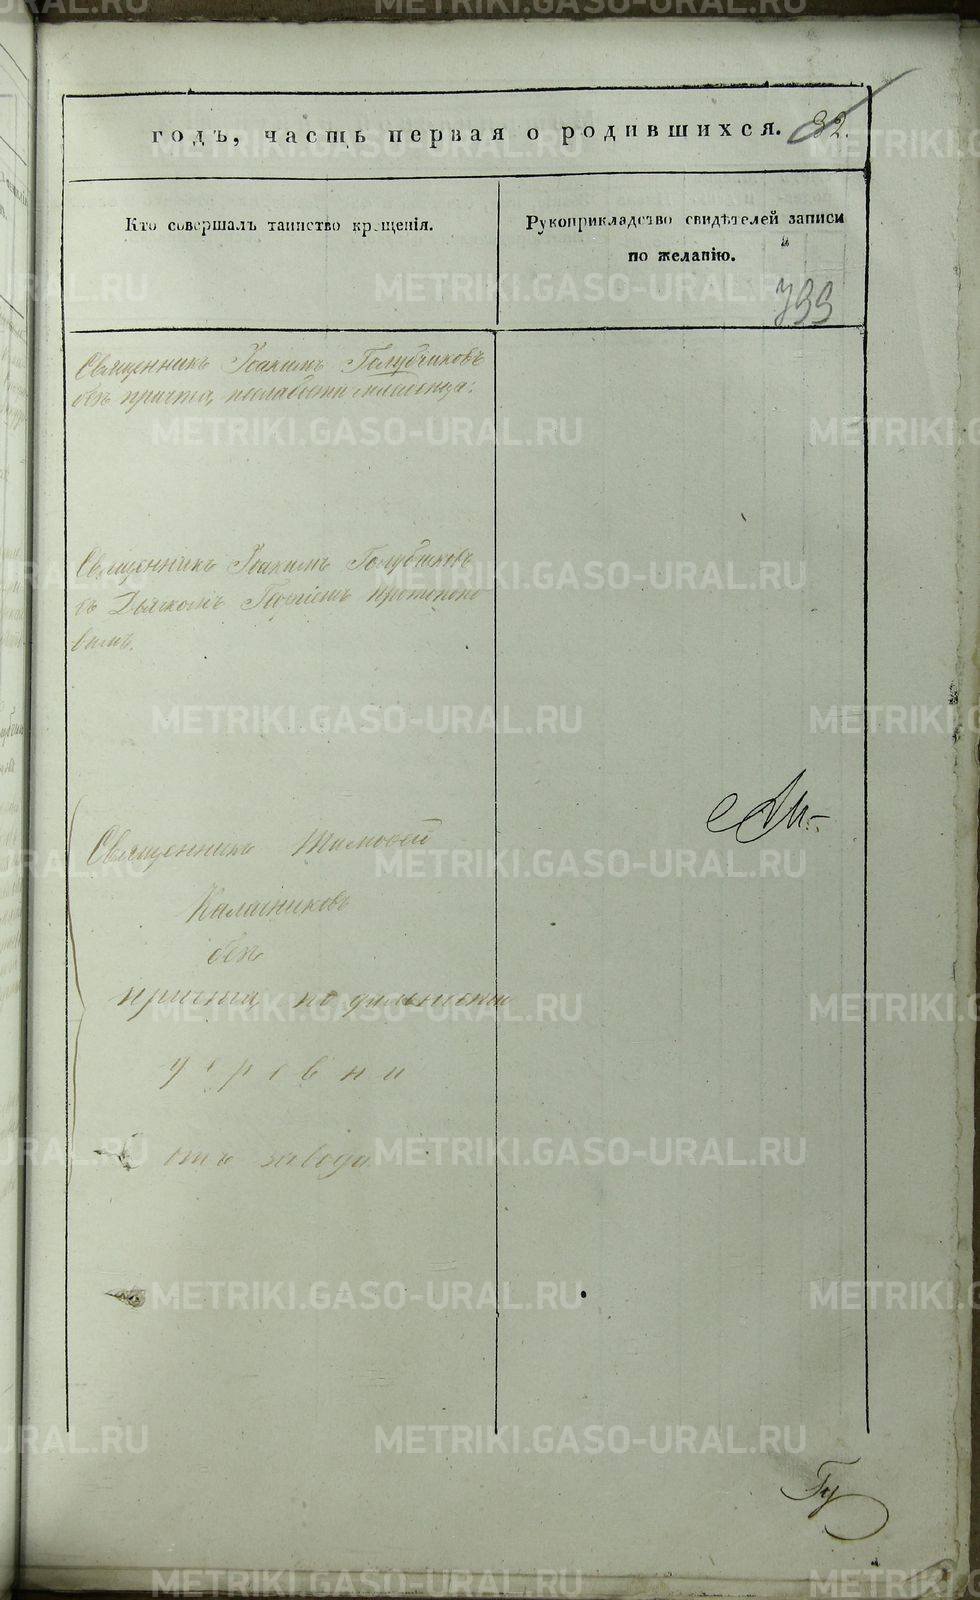 годъ, часть первая о родившихся. 32.
Кто совершалъ таинство крещенія.
Рукоприкладство свидѣтелей записи
по желанію.
799
Священникъ Іоакимъ Голубчиковъ
безъ причта, по слабости младенца.
Священникъ Іоакимъ Голубчиковъ
съ Дьячкомъ Георгіемъ Протопопо
вымъ.
Священникъ Тимофей
Калашниковъ
безъ
причта, по дальности
деревни
отъ завода
METRIKI.GASO-URAL.RU